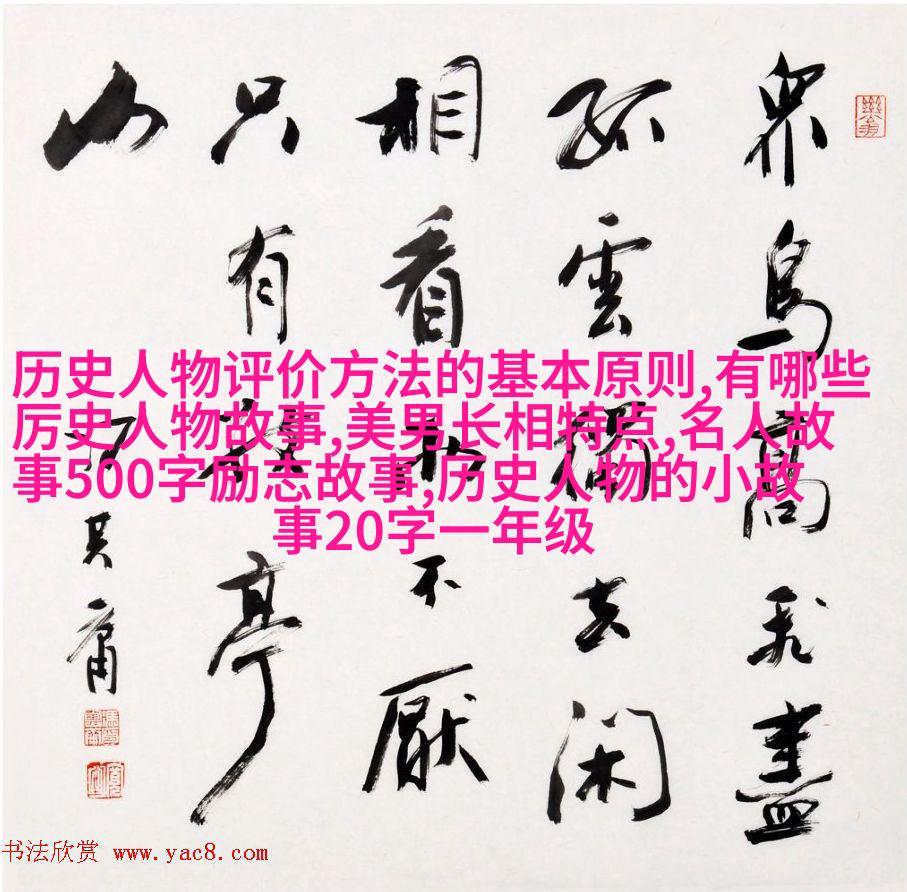 眾鳥高飛盡
孤雲獨去閑
相看不厭
只有亭
山
其庸
历史人物评价方法的基本原则,有哪些
厉史人物故事,美男长相特点,名人故
事500字励志故事,历史人物的小故
事20字一年级
书法欣赏 www.yac8.com